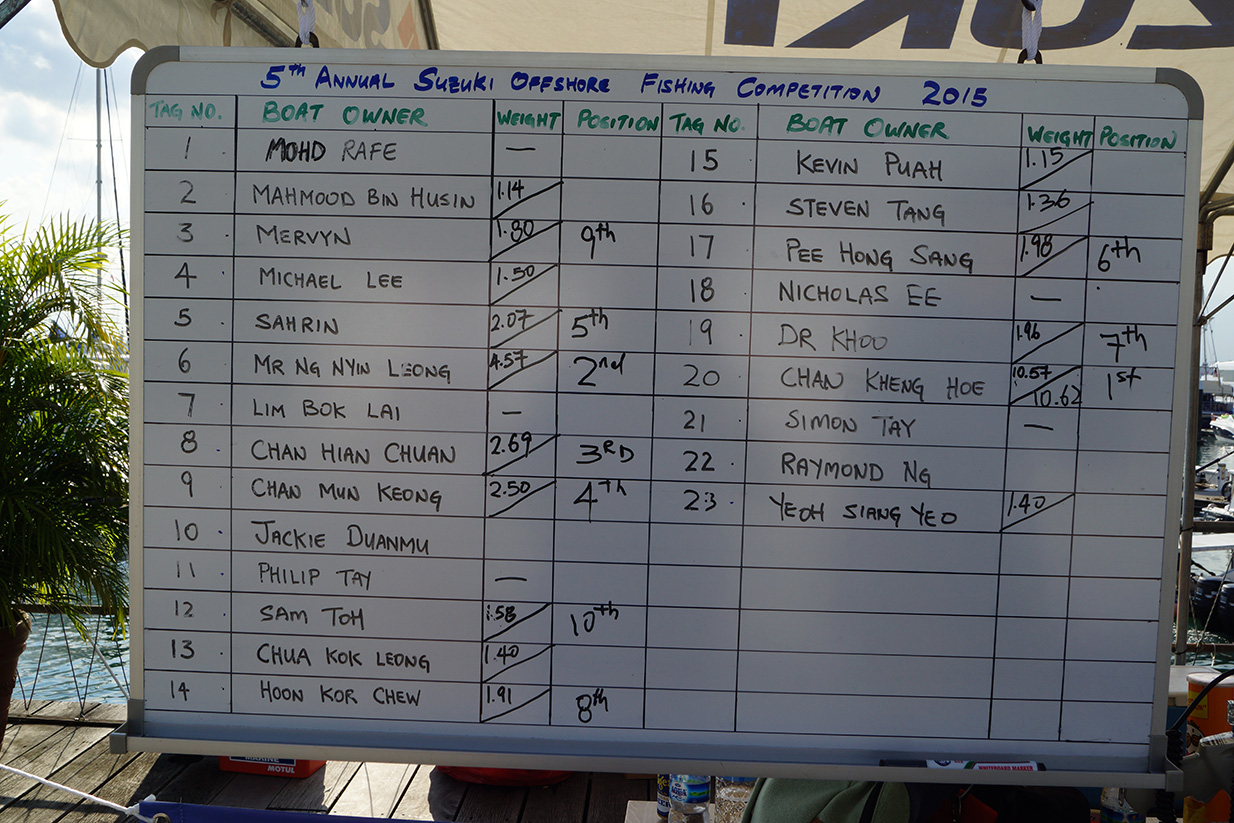 ZUKI
5th ANNUAL SUZUKI OFFSHORE FISHING COMPETITION 2015
TAG NO. BOAT OWNER WEIGHT POSITION TAG NO. BOAT OWNER WEIGHT POSITION
1 MOHD RAFE — 15 KEVIN PUAH 1.15
2 MAHMOOD BIN HUSIN 1.14 16 STEVEN TANG 1.36
3 MERVYN 1.80 9th 17 PEE HONG SANG 1.98 6th
4 MICHAEL LEE 1.50 18 NICHOLAS EE —
5 SAHRIN 2.07 5th 19 DR KHOO 1.96 7th
6 MR NG NYIN LEONG 4.57 2nd 20 CHAN KHENG HOE 10.57 10.62 1st
7 LIM BOK LAI — 21 SIMON TAY —
8 CHAN HIAN CHUAN 2.69 3RD 22 RAYMOND NG
9 CHAN MUN KEONG 2.50 4th 23 YEOH SIANG YEO 1.40
10 JACKIE DUANMU
11 PHILIP TAY —
12 SAM TOH 1.58 10th
13 CHUA KOK LEONG 1.40
14 HOON KOR CHEW 1.91 8th
WHITEBOARD MARKER
MARINE
MOTUL